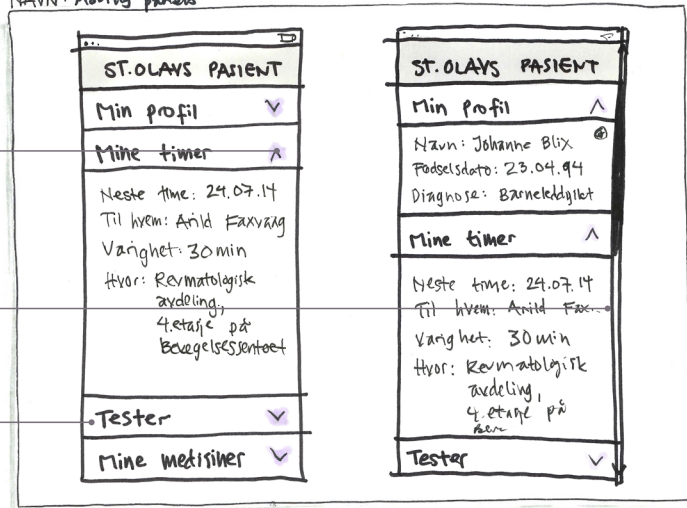 NAVN: Moving panels
ST. OLAVS PASIENT
Min profil
Mine timer
Neste time: 24.07.14
Til hvem: Arild Faxvaag
Varighet: 30 min
Hvor: Revmatologisk
avdeling,
4.etasje på
Bevegelsessenteet
Tester
Mine medisiner
ST. OLAVS PASIENT
Min profil
Navn: Johanne Blix
Fødselsdato: 23.04.94
Diagnose: Barneleddgikt
Mine timer
Neste time: 24.07.14
Til hvem: Arild Fax...
Varighet: 30 min
Hvor: Revmatologisk
avdeling,
4.etasje på
Beve
Tester